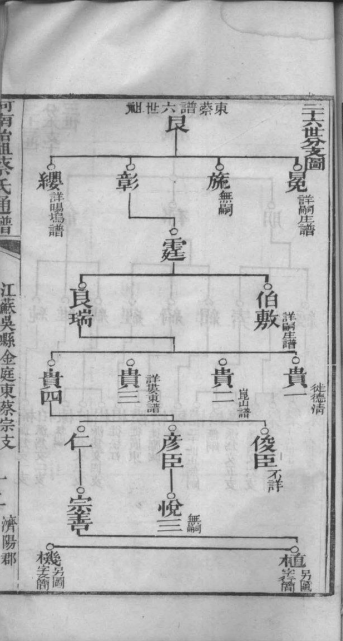 二十六世分支圖
東蔡譜六世
良
冕
詳嗣庄譜
施
無嗣
彰
纓
詳暘塢譜
霆
伯敷
詳嗣庄譜
良瑞
貴一
徙德清
貴二
崑山譜
貴三
貴四
俊臣
不詳
彦臣
仁
悅三
無嗣
宗善
植
另圖
字簡
機
另圖
字簡
河南始祖蔡氏通譜
江蘇吳縣金庭東蔡宗支
濟陽郡